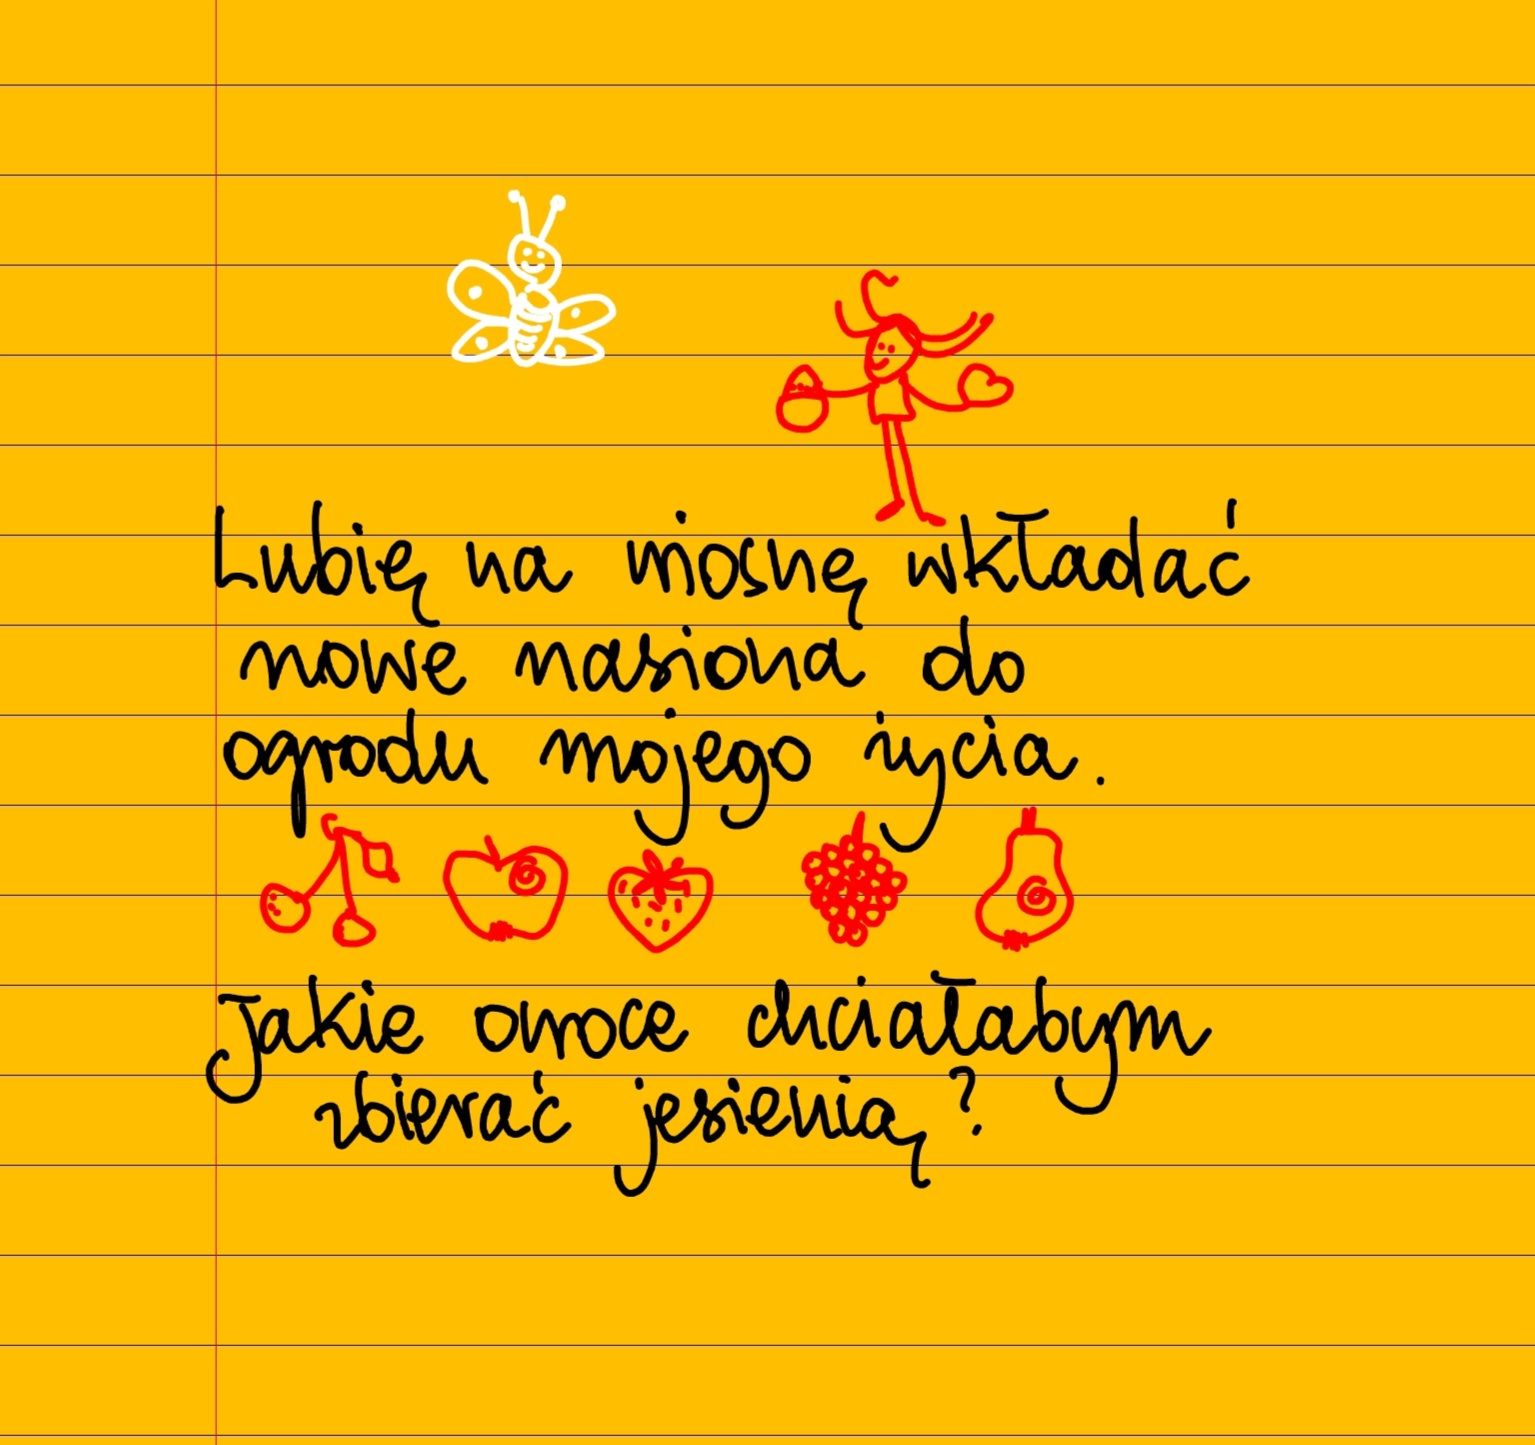 Lubię na wiosnę wkładać
nowe nasiona do
ogrodu mojego życia.
Jakie owoce chciałabym
zbierać jesienią?